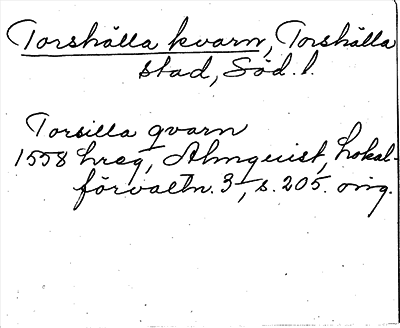 Torshälla kvarn, Torshälla
stad, Söd. l.
Torsilla qvarn
1558 hreg, Almquist, Lokal-
förvaltn. 3, s. 205. orig.